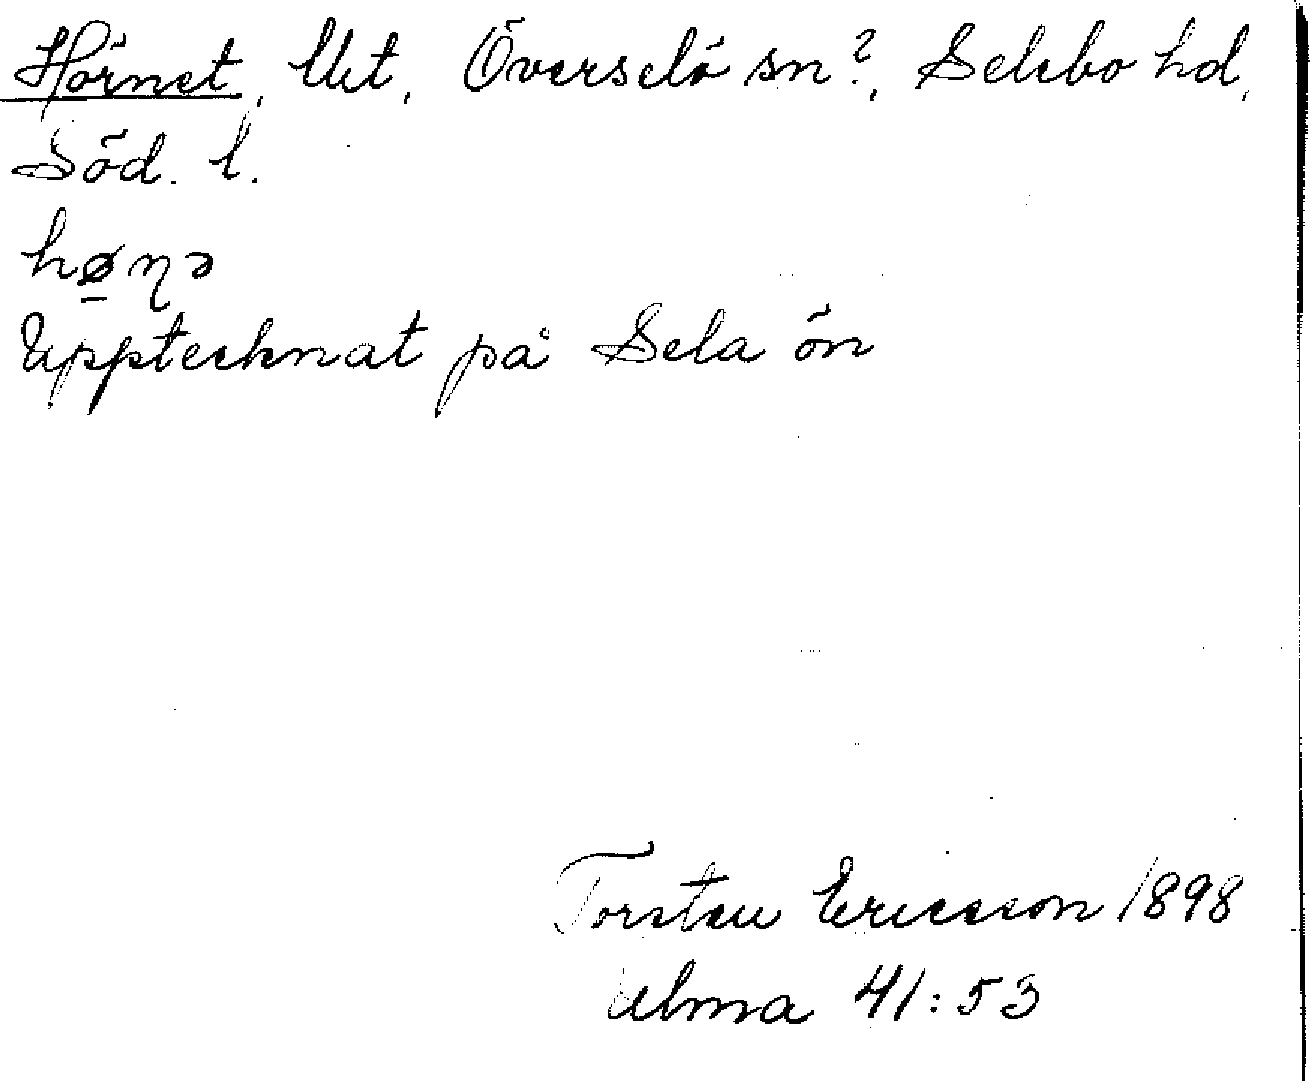 Hörnet, Utt, Överselö sn?, Selebo hd,
Söd. l.
hø̲ɳə
Upptecknat på Sela ön
Torsten Ericsson 1898
Ulma 41:53